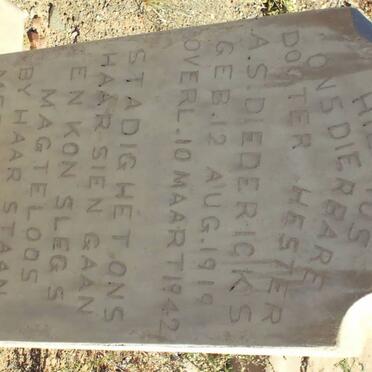 HIER RUS
ONS DIERBARE
DOGTER HESTER
A.S. DIEDERICKS
GEB. 12 AUG. 1919
OVERL. 10 MAART 1942
STADIG HET ONS
HAAR SIEN GAAN
EN KON SLEGS
MAGTELOOS
BY HAAR STAAN